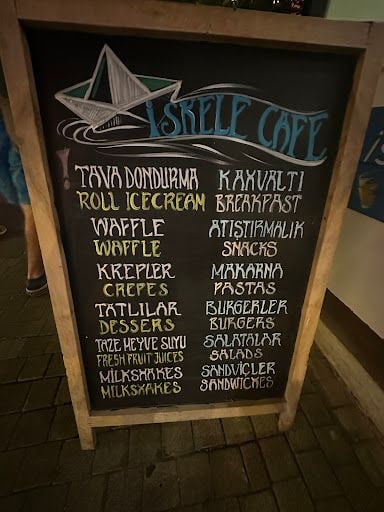 İSKELE CAFE
TAVA DONDURMA
ROLL ICECREAM
WAFFLE
WAFFLE
KKEPLER
CREPES
TATLILAR
DESSERTS
TAZE MEYVE SUYU
FRESH FRUIT JUICES
MİLKSHAKES
MILKSHAKES
KAHVALTI
BREAKFAST
ATIŞTIRMALIK
SNACKS
MAKARNA
PASTAS
BURGERLER
BURGERS
SALATALAR
SALADS
SANDVİÇLER
SANDWICHES